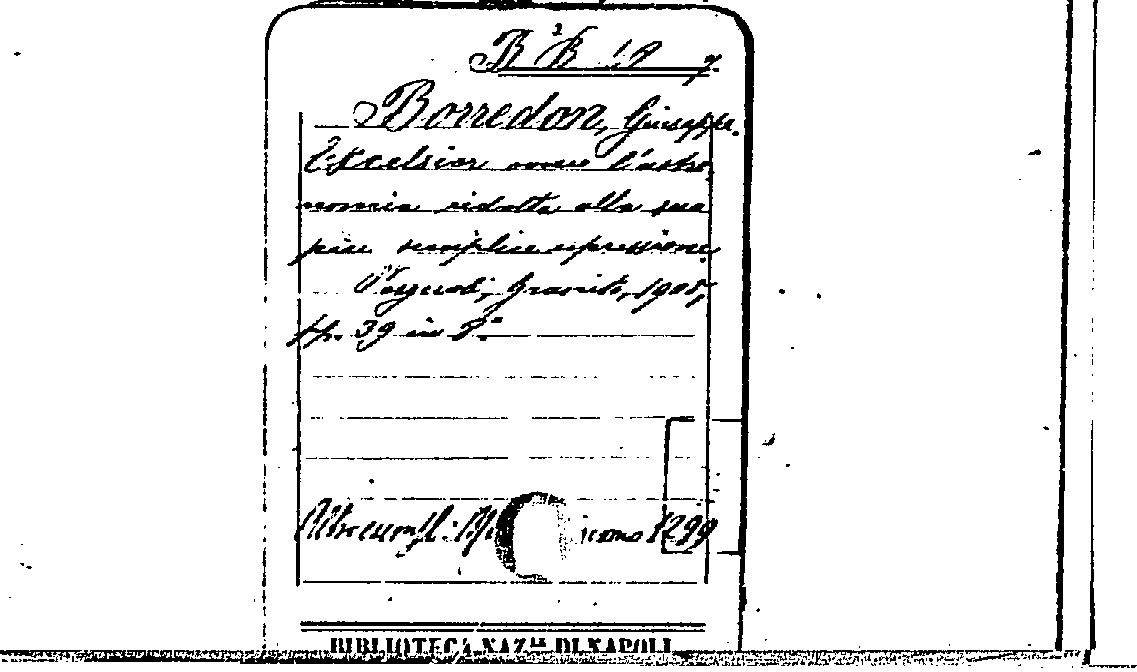 Borredon, Giuseppe.
Excelsior ovvero l'astro
nomia ridotta alla sua
più semplice espressione
Napoli, Granito, 1905,
pp. 39 in 8.°
1299
BIBLIOTECA NAZ.LE DI NAPOLI